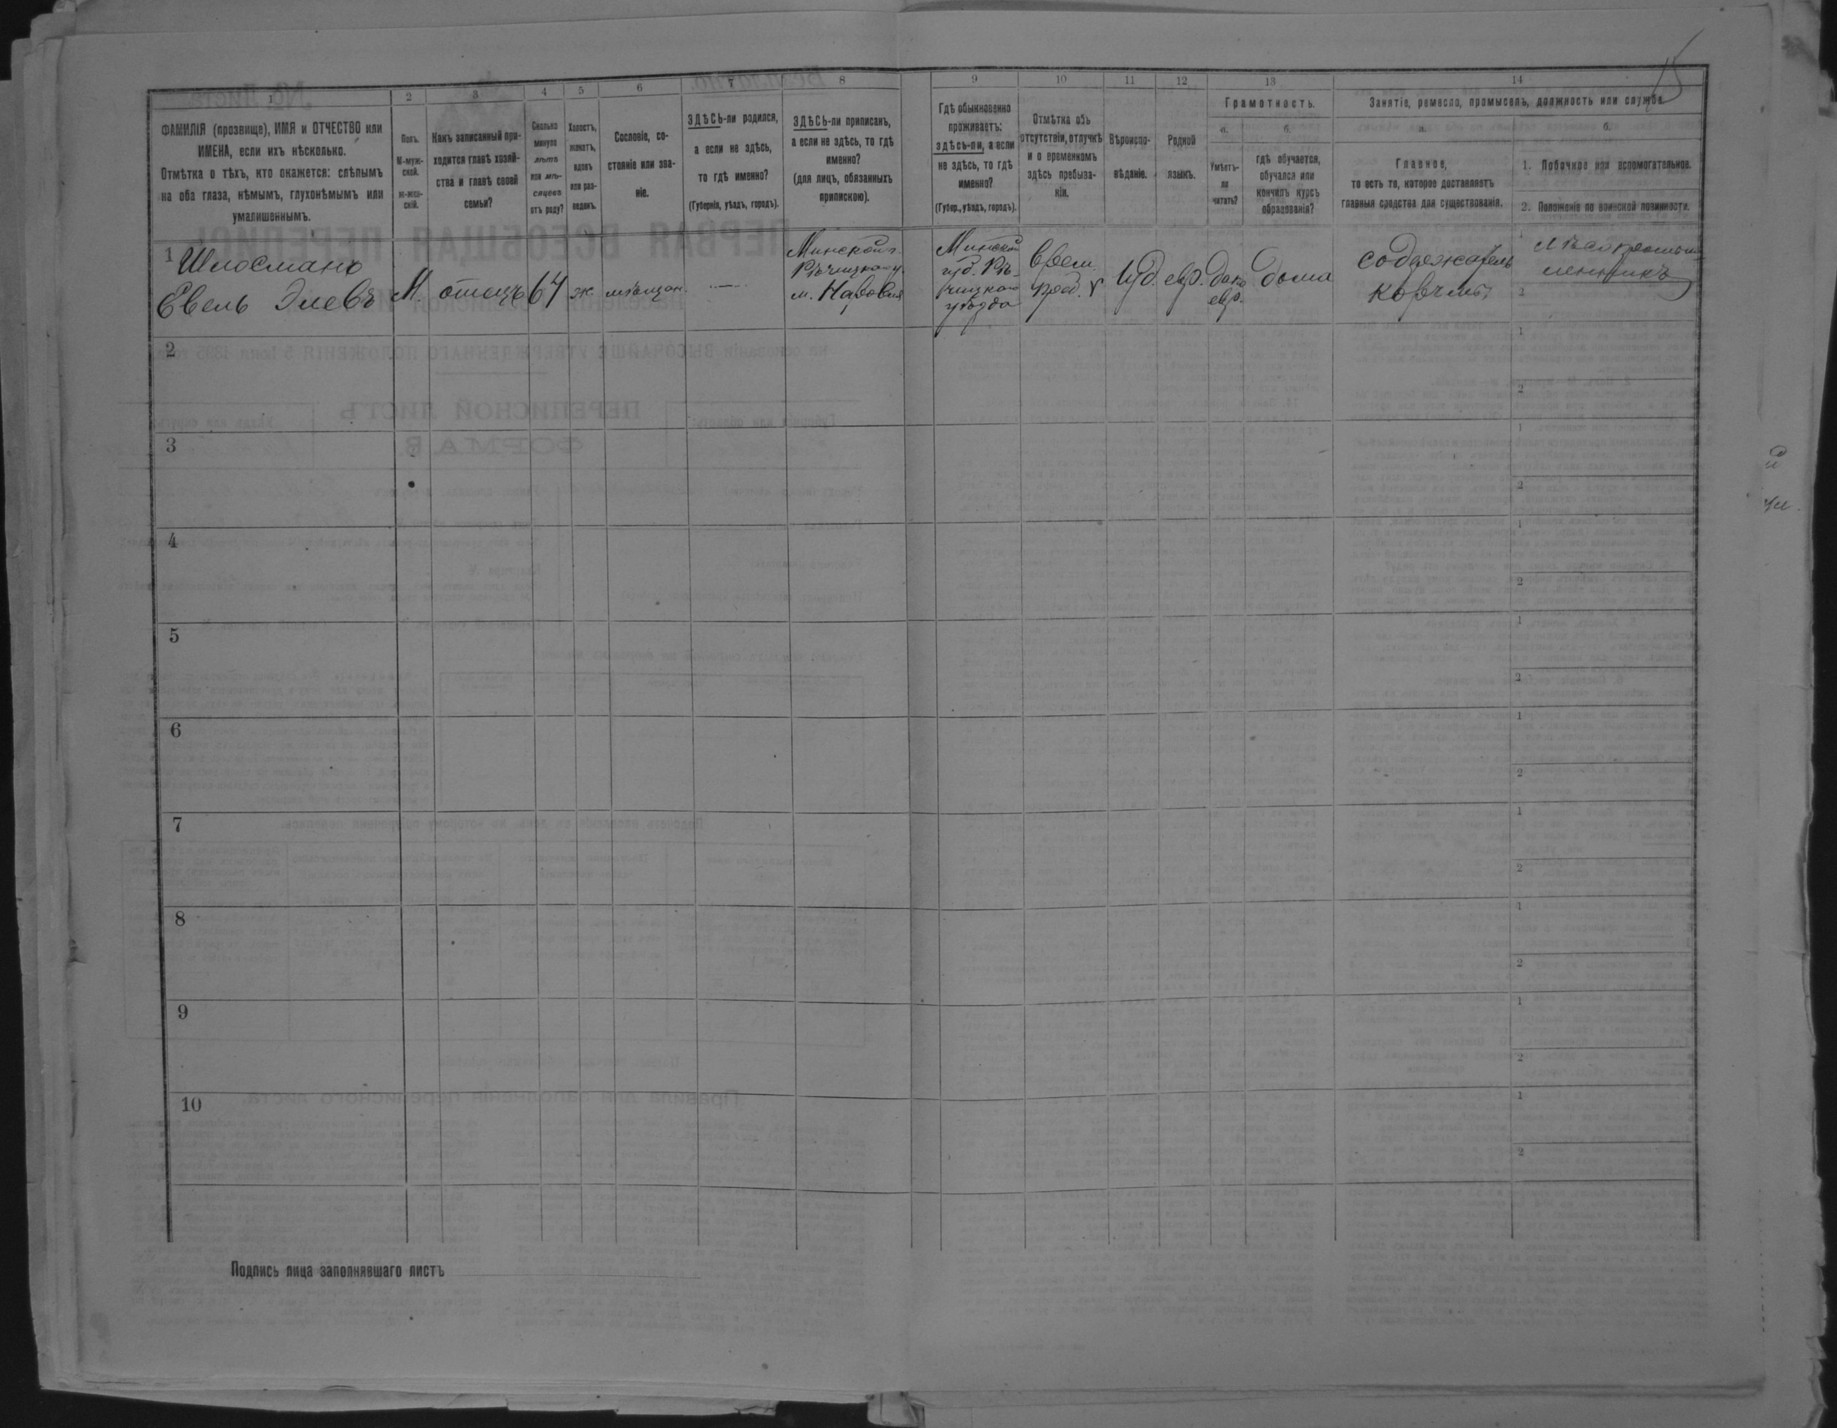 15
1
2
3
4
5
6
7
8
9
10
11
12
13
14
ФАМИЛІЯ (прозвище), ИМЯ и ОТЧЕСТВО или
ИМЕНА, если ихъ нѣсколько.
Отмѣтка о тѣхъ, кто окажется: слѣпымъ
на оба глаза, нѣмымъ, глухонѣмымъ или
умалишеннымъ.
Полъ.
М-муж-
ской.
Ж-жен-
скій.
Какъ записанный при-
ходится главѣ хозяй-
ства и главѣ своей
семьи?
Сколько
минуло
лѣтъ
или мѣ-
сяцевъ
отъ роду?
Холостъ,
женатъ,
вдовъ
или раз-
веденъ.
Сословіе, со-
стояніе или зва-
ніе.
ЗДѢСЬ-ли родился,
а если не здѣсь,
то гдѣ именно?
(Губернія, уѣздъ, городъ).
ЗДѢСЬ-ли приписанъ,
а если не здѣсь, то гдѣ
именно?
(для лицъ, обязанныхъ
припискою).
Гдѣ обыкновенно
проживаетъ:
здѣсь-ли, а если
не здѣсь, то гдѣ
именно?
(Губер., уѣздъ, городъ).
Отмѣтка объ
отсутствіи, отлучкѣ
и о временномъ
здѣсь пребыва-
ніи.
Вѣроиспо-
вѣданіе.
Родной
языкъ.
Грамотность.
а.
Умѣетъ-
ли
читать?
б.
гдѣ обучается,
обучался или
кончилъ курсъ
образованія?
Занятіе, ремесло, промыселъ, должность или служба.
а.
Главное,
то есть то, которое доставляетъ
главныя средства для существованія.
б.
1. Побочное или вспомогательное.
2. Положеніе по воинской повинности.
1
Шлосманъ
Евель Элевъ
М.
отецъ
64
ж.
мѣщан.
—
Минской г.
Рѣчицкаго у.
м. Наровля
Минской
губ. Рѣ-
чицкаго
уѣзда
Врем.
преб.
Iуд.
евр.
да по
евр.
дома
содержатель
корчмы
1
2
2
1
2
3
1
2
4
1
2
5
1
2
6
1
2
7
1
2
8
1
2
9
1
2
10
1
2
Подпись лица заполнявшаго листъ